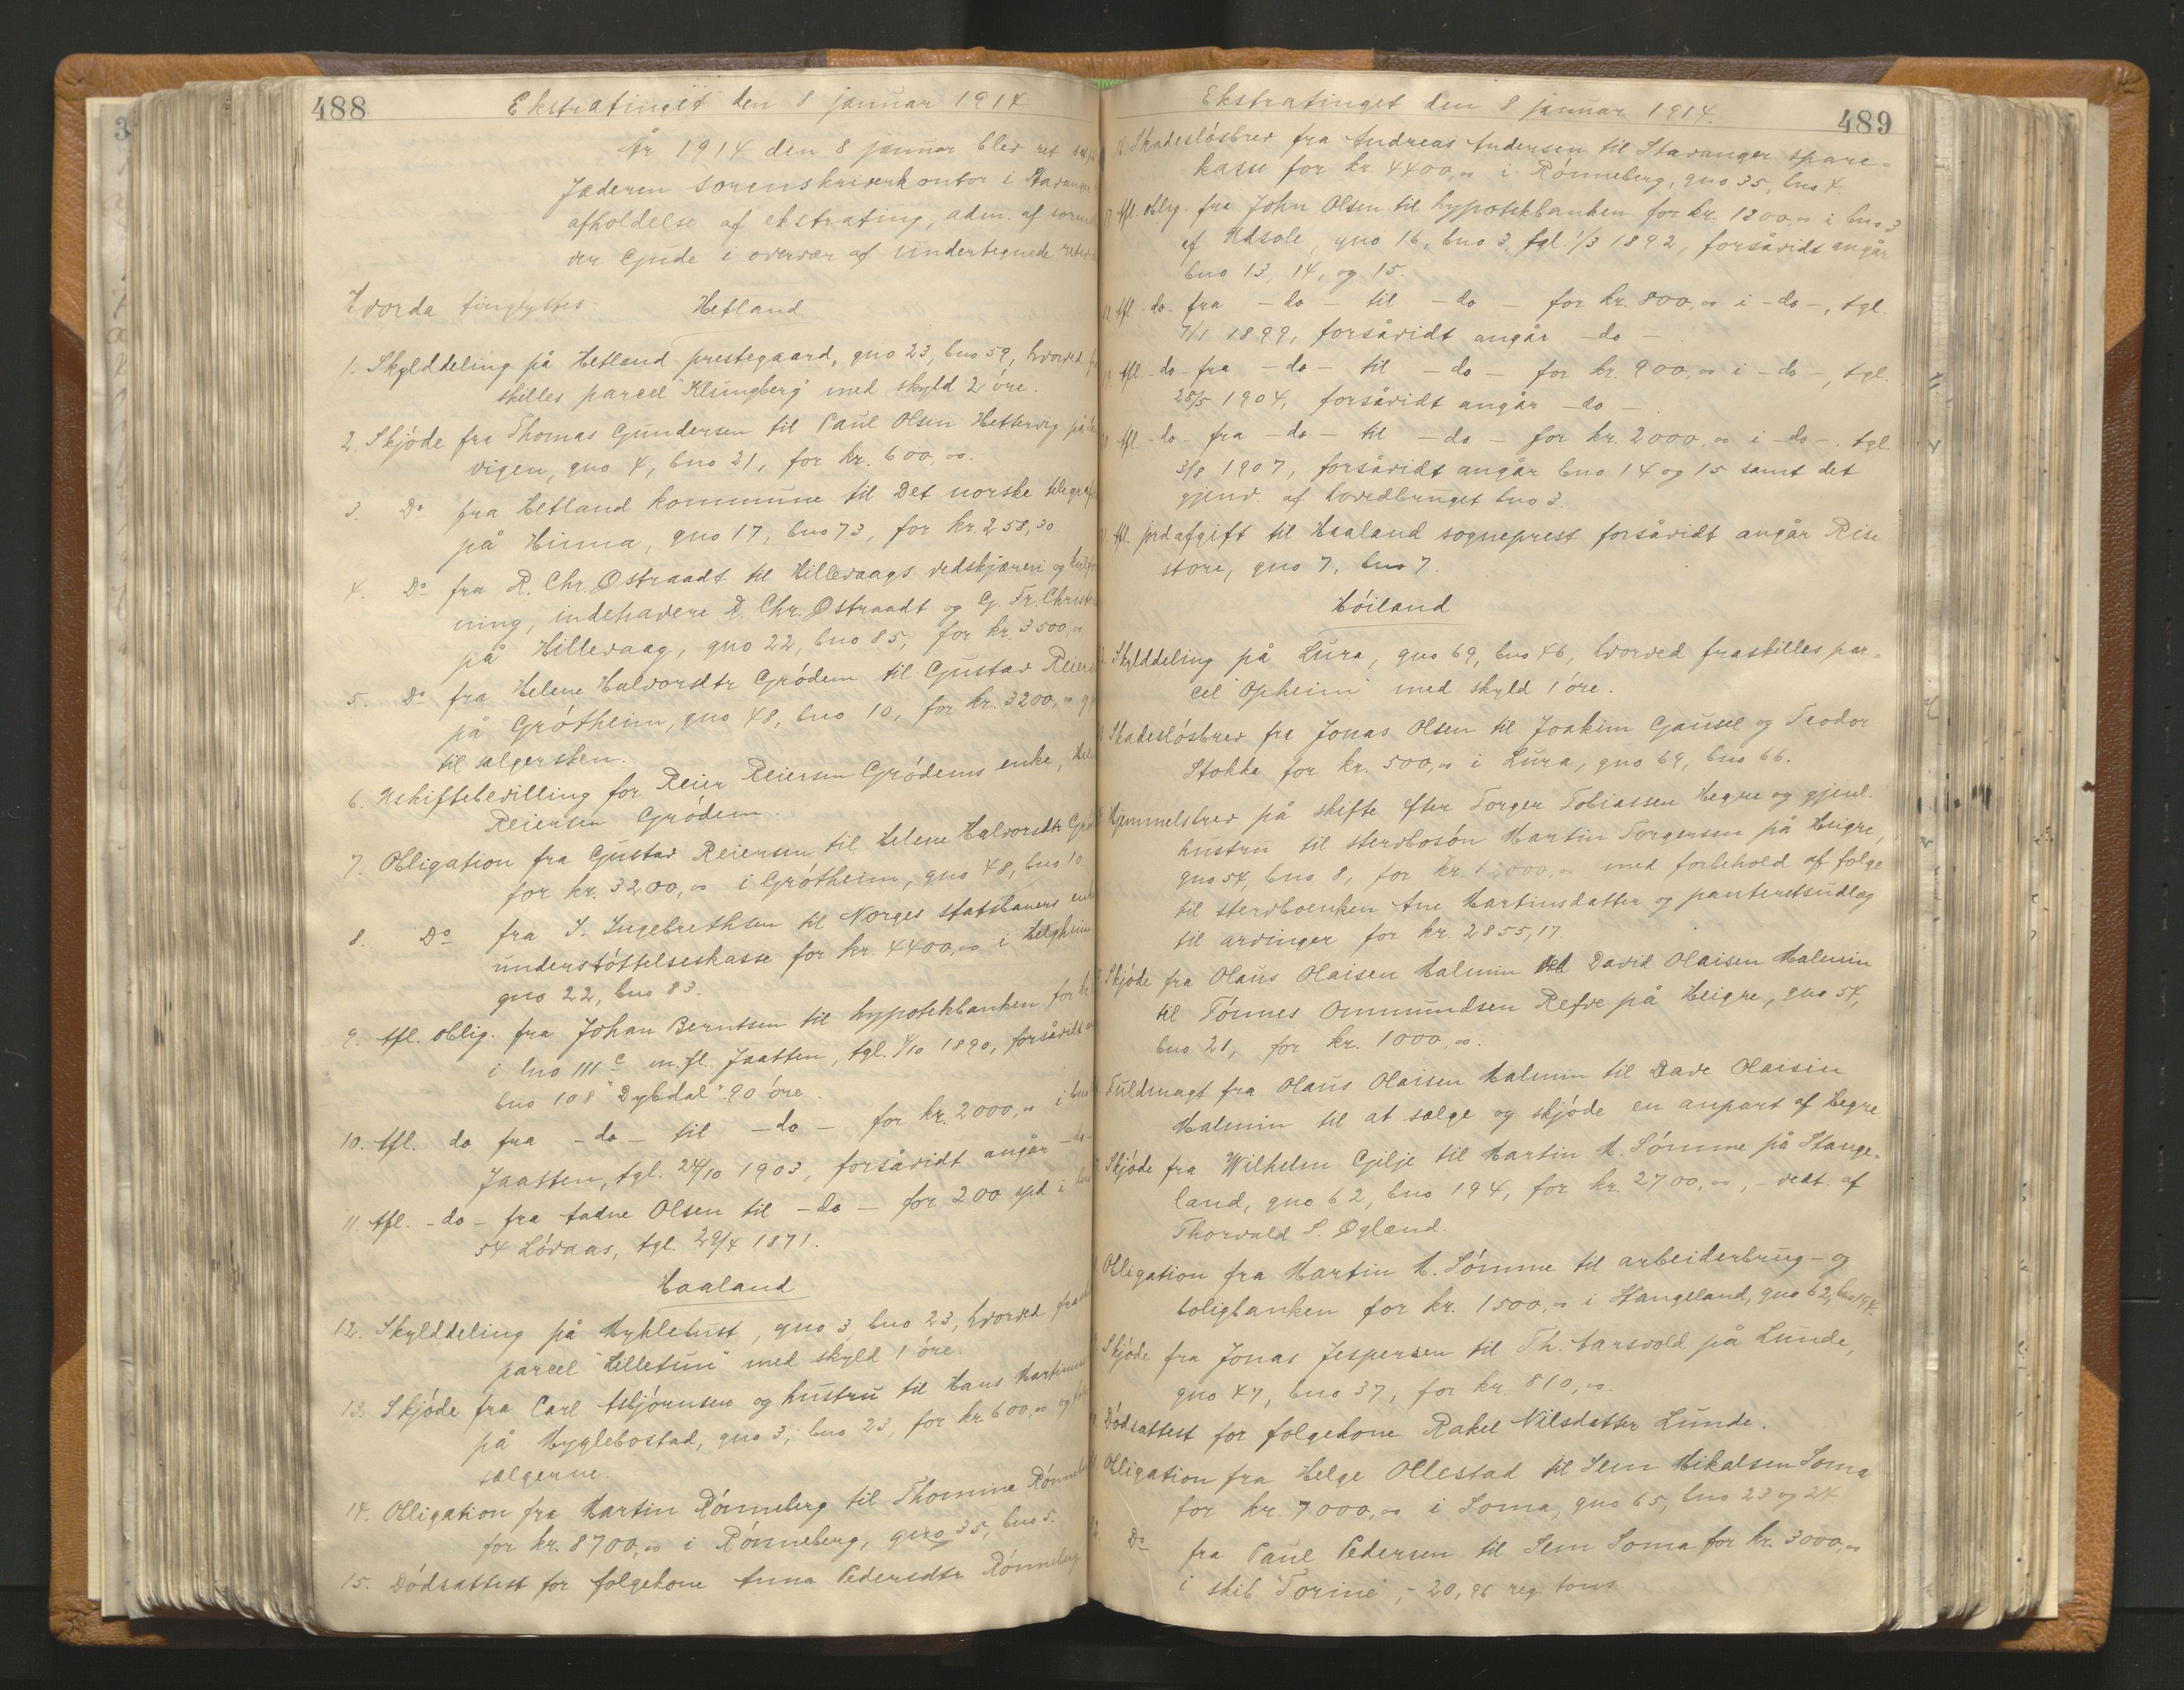 488
Ekstratinget den 8 januar 1914
År 1914 den 8 januar blev ret
Jæderen sorenskriverkontor i Stavanger
afholdelse af ekstrating, adm. af
ver Gjude i overvær af undertegnede
Hvorda tinglystes:
Hetland
1. Skylddeling på Hetland prestegaard, gno 23, bno 59, hvorved
skilles parcel "Klungberg" med skyld 2 øre.
2. Skjøde fra Thomas Gundersen til Paul Olsen Hettervig på
vigen, gno 4, bno 21, for kr. 600,00.
3. Do fra Hetland kommune til Det norske
på Hinna, gno 17, bno 73, for kr 258,30
4. Do fra R. Chr. Østraadt til Hillevaags vedskjæreri og
ning, indehavere R. Chr. Østraadt og G. Fr.
på Hillevaag, gno 22, bno 85, for kr. 3500,00
5. Do fra Helene Halvorsdtr Grødem til Gustav
på Grøtheim, gno 48, bno 10, for kr. 3200,00
til sælgersken.
6. Uskiftebevilling for Reier Reiersen Grødems enke,
Reiersen Grødem.
7. Obligation fra Gustav Reiersen til Helene Halvorsdtr
for kr. 3200,00 i Grøtheim, gno 48, bno 10
8. Do fra I. Ingebrethsen til Norges statsbaners
understøttelseskasse for kr. 4400,00 i Helgheim
gno 22, bno 83.
9. Afl. oblig. fra Johan Berntsen til hypotekbanken for kr
i lno 111c m.fl. Jaatten, tgl. /10 1890, forsåvidt
bno 108 "Dybdal" 90 øre.
10. Afl. do fra -do- til -do- for kr. 2000,00 i
Jaatten, tgl. 24/10 1903, forsåvidt angår -do-
11. Afl. -do- fra Aadne Olsen til -do- for 200 spd. i
54 Løvaas, tgl. 29/4 1871.
Haaland
12. Skylddeling på Myklebust, gno 3, bno 23, hvorved
parcel "Lilletun" med skyld 1 øre.
13. Skjøde fra Carl Asbjørnsen og hustru til Hans
på Myglebostad, gno 3, bno 23, for kr. 600,00 og
sælgerne.
14. Obligation fra Martin Rønneberg til Thomine
for kr. 8700,00 i Rønneberg, gno 35, bno 5.
15. Dødsattest for folgekone Anna Pedersdtr Rønneberg
Ekstratinget den 8 januar 1914.
489
16. Skadesløsbrev fra Andreas Andersen til Stavanger spare-
kasse for kr. 4400,00 i Rønneberg, gno 35, bno 4.
17. Afl. oblig. fra John Olsen til hypotekbanken for kr. 1200,00 i bno 3
af Udsole, gno 16, bno 3, tgl. 1/3 1892, forsåvidt angår
bno 13, 14, og 15.
Afl. -do- fra -do- til -do- for kr. 800,00 i -do-, tgl.
7/1 1899, forsåvidt angår -do-
Afl. -do- fra -do- til -do- for kr. 900,00 i -do-, tgl.
28/5 1904, forsåvidt angår -do-.
Afl. -do- fra -do- til -do- for kr. 2000,00 i -do-, tgl.
3/8 1907, forsåvidt angår bno 14 og 15 samt det
gjenv. af hovedbruget bno 3.
Afl. jordafgift til Haaland sogneprest forsåvidt angår Rise
store, gno 7, bno 7.
Høiland
Skylddeling på Lura, gno 69, bno 46, hvorved fraskilles par-
cel "Opheim" med skyld 1 øre.
Skadesløsbrev fra Jonas Olsen til Joakim Gausel og Teodor
Stokka for kr. 500,00 i Lura, gno 69, bno 66.
Hjemmelsbrev på skifte efter Torger Tobiassen Hegre og gjenl.
hustru til stervbosøn Martin Torgersen på Heigre,
gno 54, bno 8, for kr. 000,00 med forbehold af folge
til stervboenken Ane Martinsdatter og panteretsudlæg
til arvinger for kr. 2855,17.
Skjøde fra Olaus Olaisen Malmin ved David Olaisen Malmin
til Tønnes Ommundsen Refve på Heigre, gno 54,
bno 21, for kr. 1000,00.
Fuldmagt fra Olaus Olaisen Malmin til Dave Olaisin
Malmin til at sælge og skjøde en anpart af Hegre
Skjøde fra Wilhelm Gilje til Martin M. Sømme på Stange-
land, gno 62, bno 194, for kr. 2700,00, - vedt. af
Thorvald S. Øgland.
Obligation fra Martin M. Sømme til arbeiderbrug- og
boligbanken for kr. 1500,00 i Stangeland, gno 62, bno 194.
Skjøde fra Jonas Jespersen til Th. Aarsvold på Lunde,
gno 47, bno 37, for kr. 810,00.
Dødsattest for folgekone Rakel Nilsdatter Lunde.
Obligation fra Helge Ollestad til Sem Mikalsen Soma
for kr. 7000,00 i Soma, gno 65, bno 23 og 24
Do fra Paul Pedersen til Sem Soma for kr. 3000,00
i skib "Torine", - 20,96 reg. tons